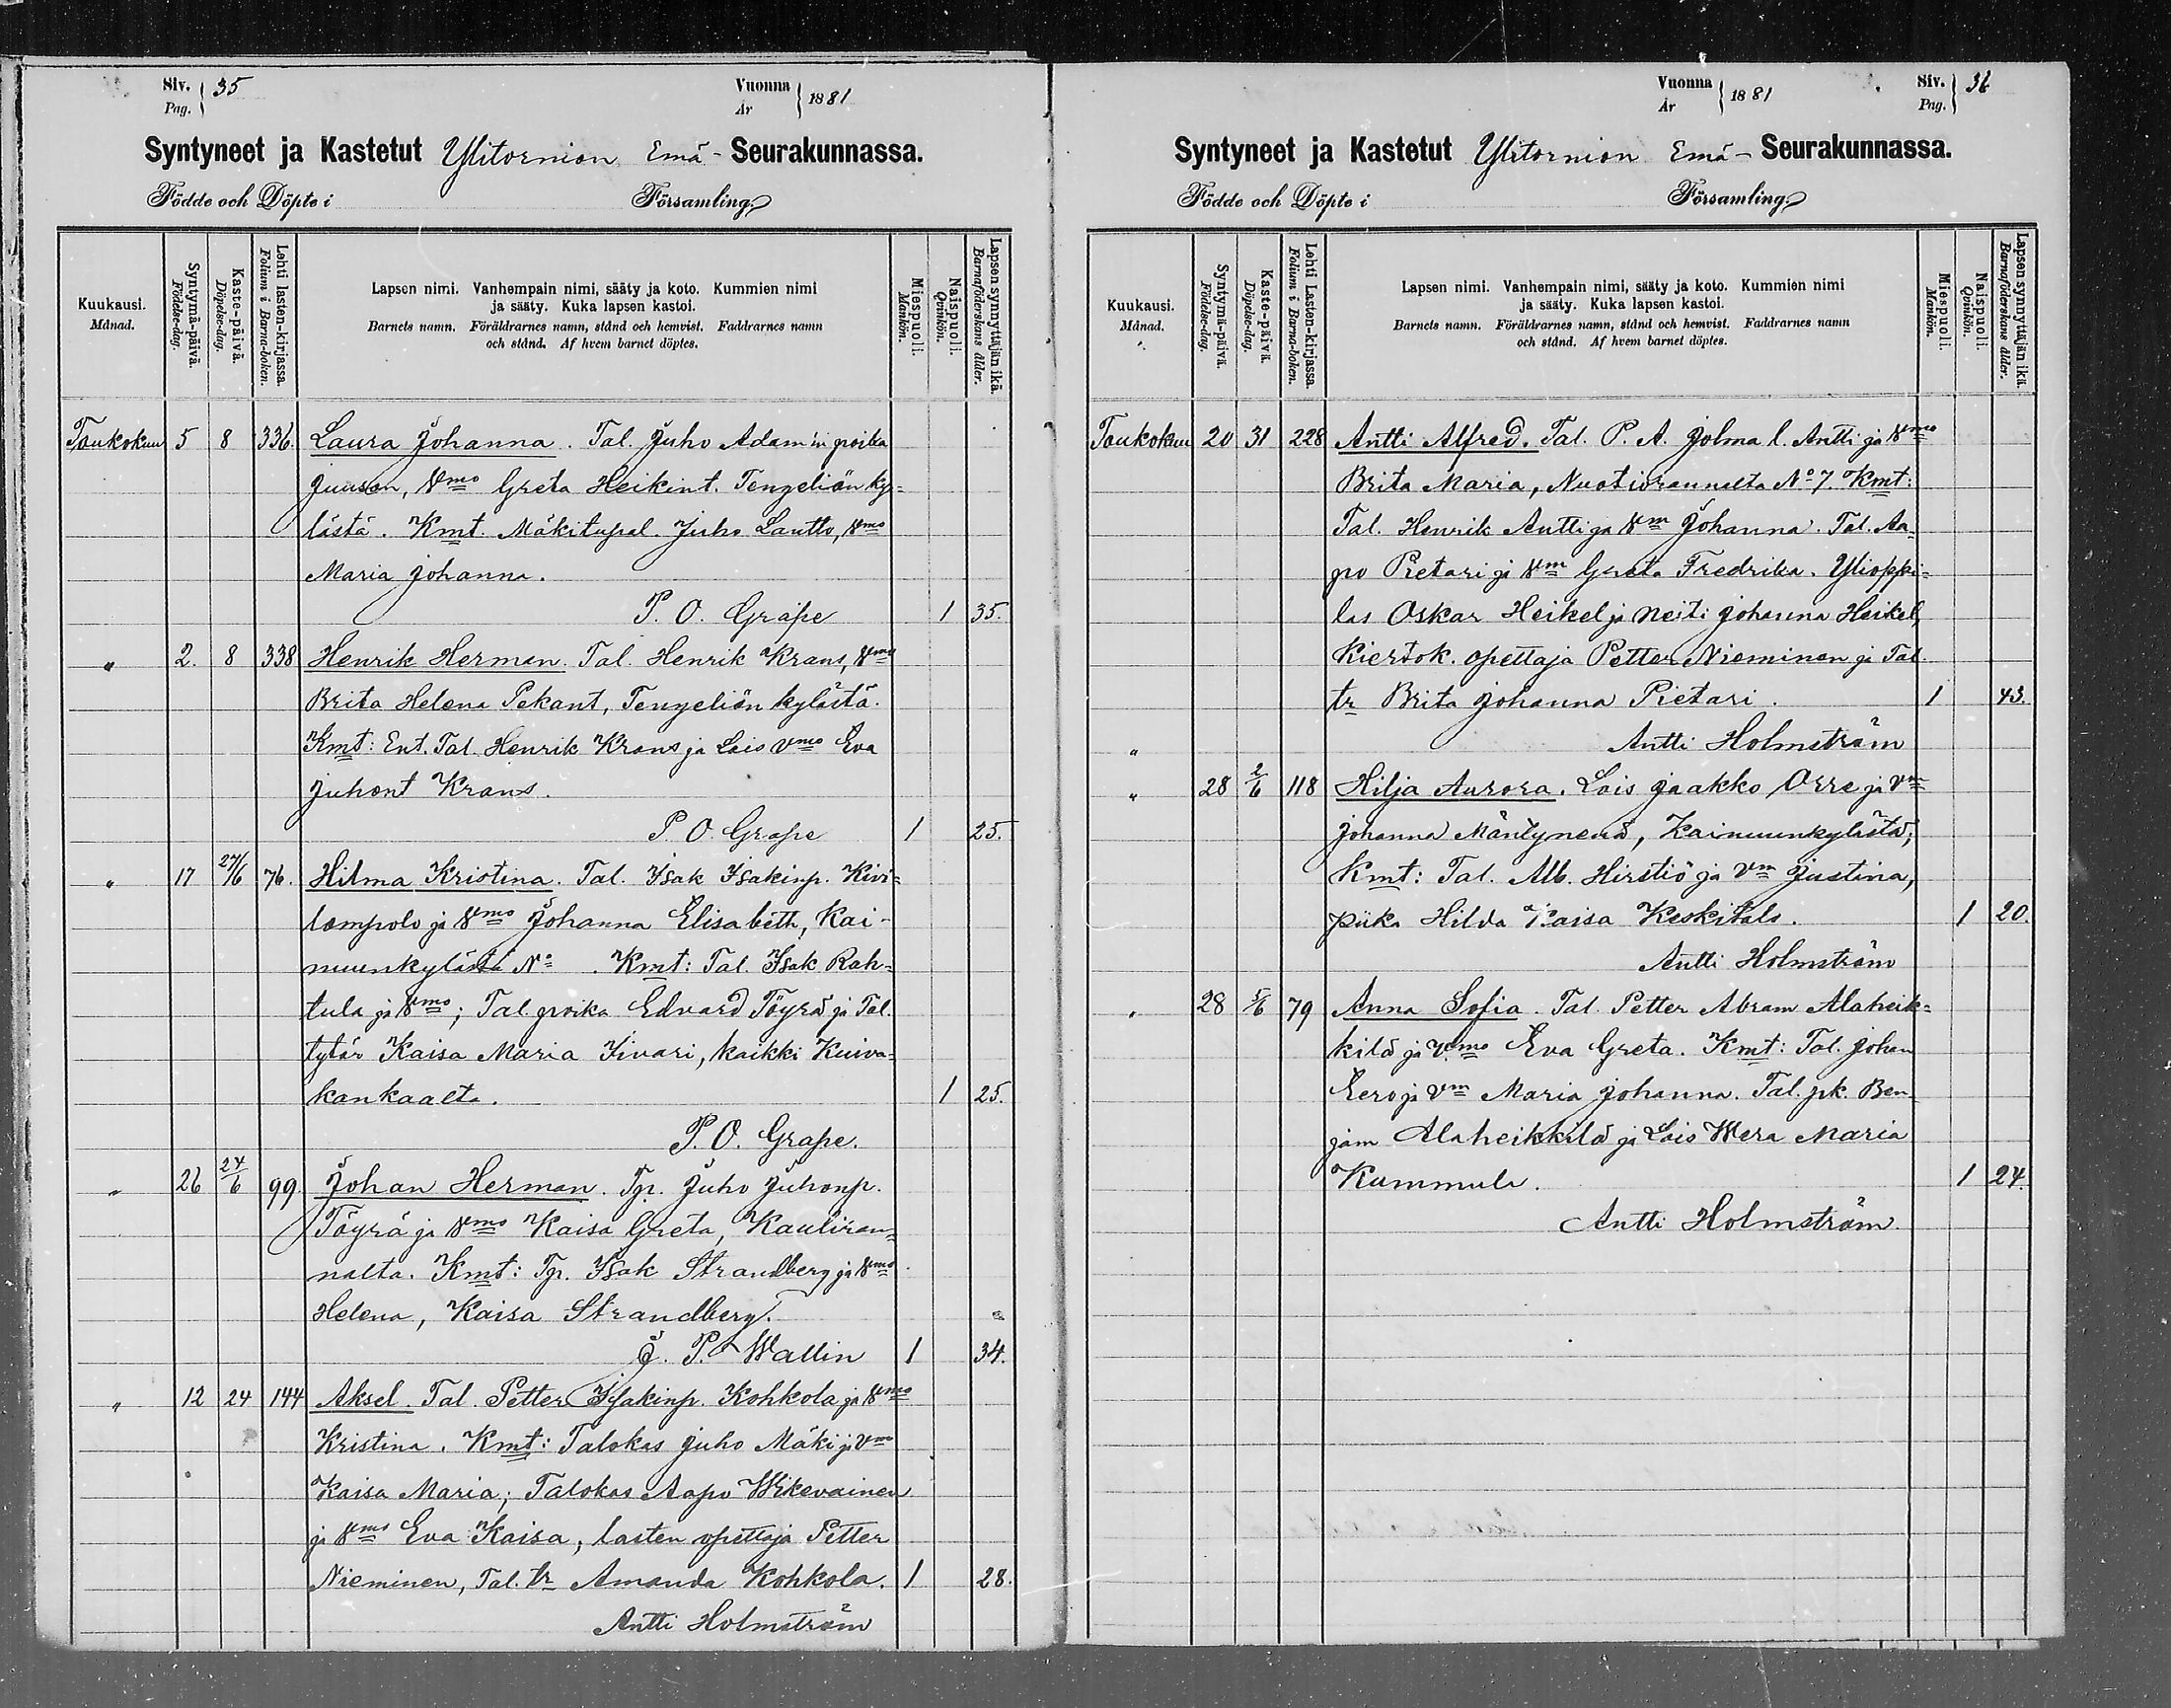 Siv. Pag. } 35 Vuonna År } 1881
Syntyneet ja Kastetut Ylitornion Emä- Seurakunnassa.
Födde och Döpte i Församling.
Kuukausi. Månad.
Syntymä-päivä. Födelse-dag.
Kaste-päivä. Döpelse-dag.
Lehti lasten-kirjassa. Folium i Barna-boken.
Lapsen nimi. Vanhempain nimi, sääty ja koto. Kummien nimi
ja sääty. Kuka lapsen kastoi.
Barnets namn. Föräldrarnes namn, stånd och hemvist. Faddrarnes namn
och stånd. Af hvem barnet döptes.
Miespuoli. Mankön.
Naispuoli. Qvinkön.
Lapsen synnyttäjän ikä. Barnaföderskans ålder.
Toukokuu 5 8 336. Laura Johanna. Tal. Juho Adam'in poika
Juuson, Vmo Greta Heikint. Tengeliön ky-
lästä. Kmt. Mäkitupal. Juho Lautto, Vmo
Maria Johanna.
P. O. Grape 1 35.
" 2. 8 338 Henrik Herman. Tal. Henrik Krans, Vmo
Brita Helena Pekant, Tengeliön kylästä.
Kmt: Ent. Tal. Henrik Krans ja Lois Vmo Eva
Juhont Krans.
P. O. Grape 1 25.
" 17 27/6 76. Hilma Kristina. Tal. Isak Isakinp. Kivi-
lompolo ja Vmo Johanna Elisabeth, Kai-
nuunkylästä No . Kmt: Tal. Isak Rah-
tula ja Vmo; Tal. poika Edvard Töyrä ja Tal.
tytär Kaisa Maria Iivari, kaikki Kuiva-
kankaalta. 1 25.
P. O. Grape.
" 26 24/6 99. Johan Herman. Tp. Juho Juhonp.
Töyrä ja Vmo Kaisa Greta, Kauliran-
nalta. Kmt: Tp. Isak Strandberg ja Vmo
Helena, Kaisa Strandberg.
J. P. Wallin 1 34.
" 12 24 144 Aksel. Tal. Petter Isakinp. Kohkola ja Vmo
Kristina. Kmt: Talokas Juho Mäki ja Vm
Kaisa Maria; Talokas Aapo Wikevainen
ja Vmo Eva Kaisa, lasten opettaja Petter
Nieminen, Tal. tr Amanda Kohkola. 1 28.
Antti Holmström
Vuonna År } 1881 Siv. Pag. } 36
Syntyneet ja Kastetut Ylitornion Emä- Seurakunnassa.
Födde och Döpte i Församling.
Kuukausi. Månad.
Syntymä-päivä. Födelse-dag.
Kaste-päivä. Döpelse-dag.
Lehti Lasten-kirjassa. Folium i Barna-boken.
Lapsen nimi. Vanhempain nimi, sääty ja koto. Kummien nimi
ja sääty. Kuka lapsen kastoi.
Barnets namn. Föräldrarnes namn, stånd och hemvist. Faddrarnes namn
och stånd. Af hvem barnet döptes.
Miespuoli. Mankön.
Naispuoli. Qvinkön.
Lapsen synnyttäjän ikä. Barnaföderskans ålder.
Toukokuu 20 31 228 Antti Alfred. Tal. P. A. Jolma l. Antti ja Vmo
Brita Maria, Nuotiorannalta No 7. Kmt:
Tal. Henrik Antti ja Vm Johanna. Tal. Aa-
po Pietari ja Vm Greta Fredrika. Ylioppi-
las Oskar Heikel ja Neiti Johanna Heikel,
Kiertok. opettaja Petter Nieminen ja Tal.
tr Brita Johanna Pietari. 1 43.
" Antti Holmström
" 28 2/6 118 Hilja Aurora. Lois Jaakko Orre ja Vm
Johanna Mäntynenä, Kainuunkylästä;
Kmt: Tal. Alb. Hirstiö ja Vm Justina,
piika Hilda Kaisa Keskitalo. 1 20.
Antti Holmström
" 28 5/6 79 Anna Sofia. Tal. Petter Abram Alaheik-
kilä ja Vmo Eva Greta. Kmt: Tal. Johan
Eero ja Vm Maria Johanna. Tal. pk. Ben-
jam Alaheikkilä ja Lois Wera Maria
Kummula. 1 24.
Antti Holmström